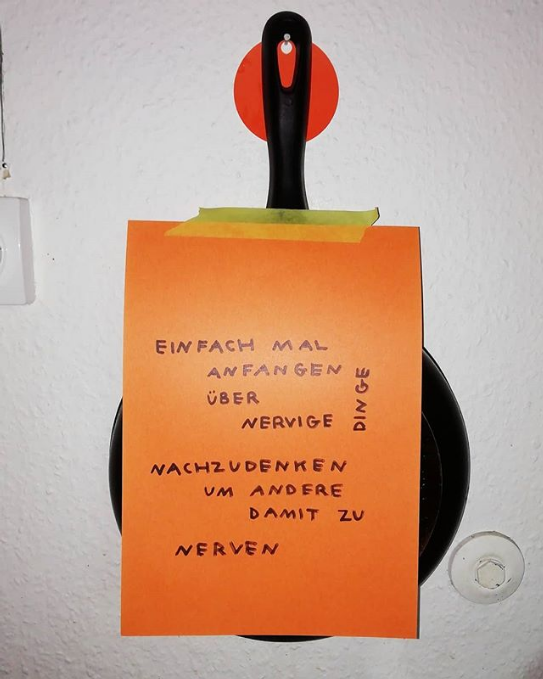 EINFACH MAL
ANFANGEN
ÜBER
NERVIGE DINGE
NACHZUDENKEN
UM ANDERE
DAMIT ZU
NERVEN